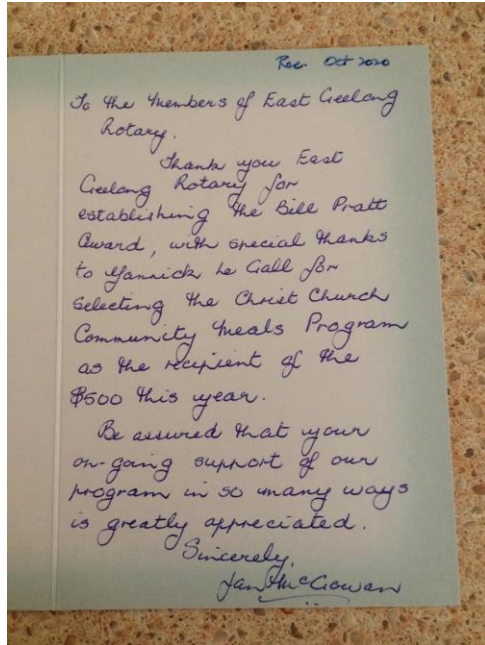 Rec. Oct 2020
To the members of East Geelong
Rotary.
Thank you East
Geelong Rotary for
establishing the Bill Pratt
Award, with special thanks
to Yannick Le Gall for
selecting the Christ Church
Community Meals Program
as the recipient of the
$500 this year.
Be assured that your
on-going support of our
program in so many ways
is greatly appreciated.
Sincerely,
Jan McGowan